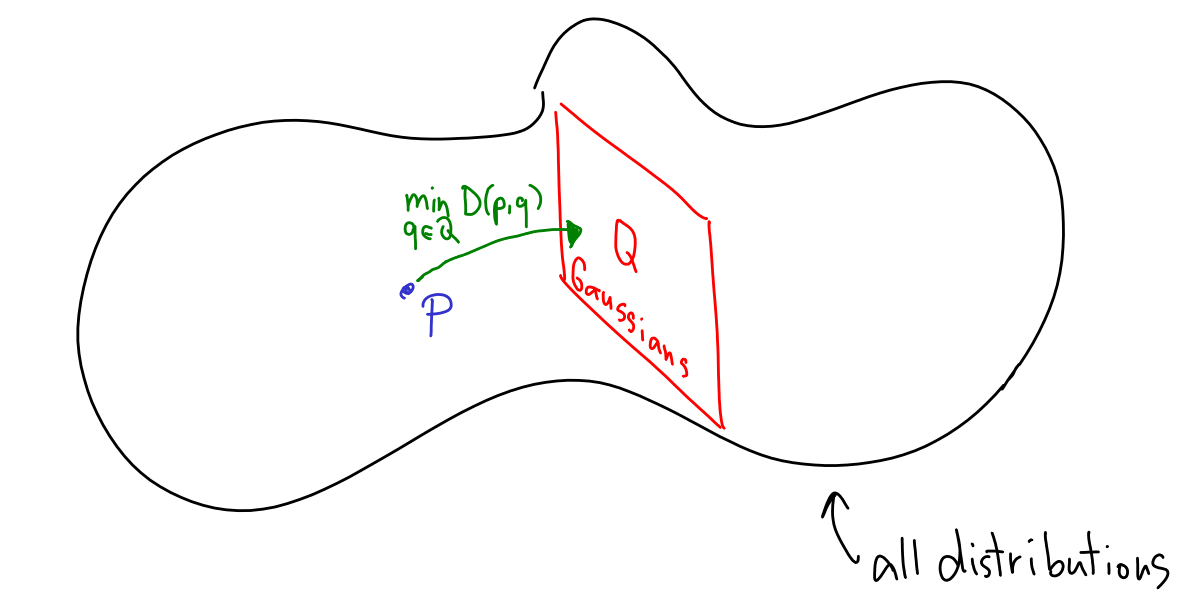 min D(p,q)
q∈Q
P
Q
Gaussians
all distributions